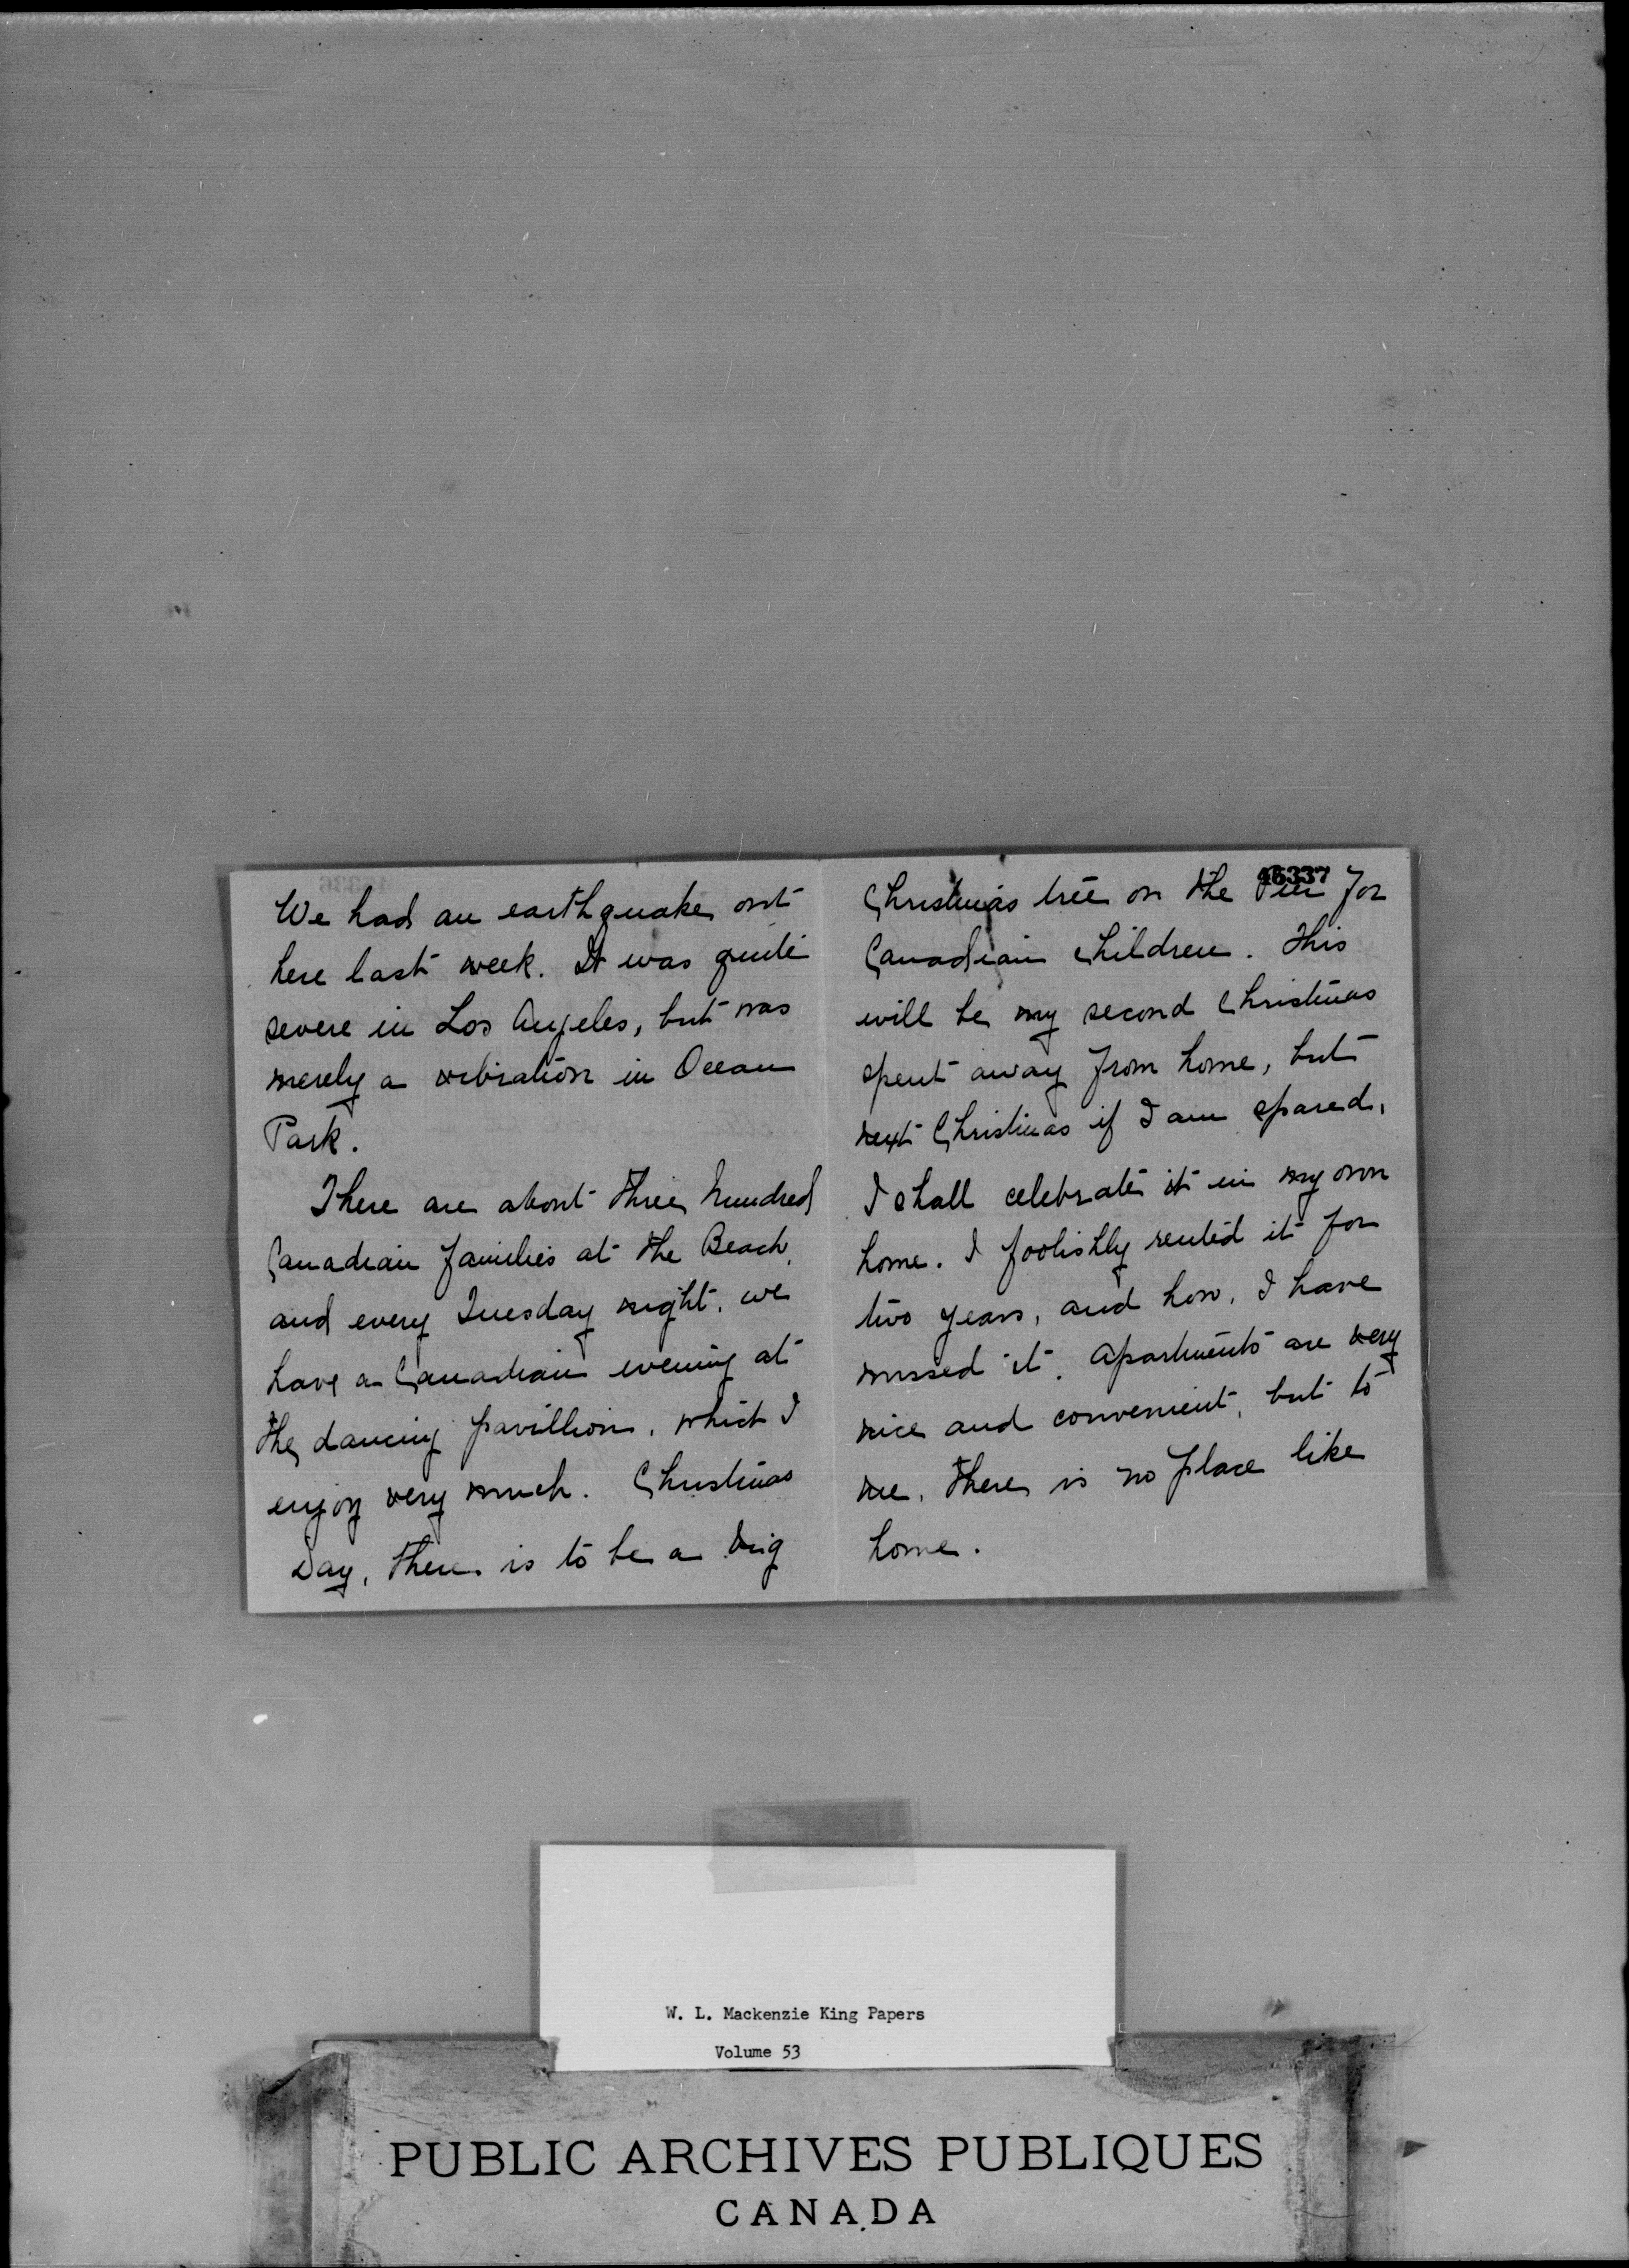 We had an earthquake out
here last week. It was quite
severe in Los Angeles, but was
merely a vibration in Ocean
Park.
There are about three hundred
Canadian families at the Beach,
and every Tuesday night, we
have a Canadian evening at
the dancing pavillion, which I
enjoy very much. Christmas
Day, there is to be a big
46337
Christmas tree on the Pier for
Canadian children. This
will be my second Christmas
spent away from home, but
next Christmas if I am spared,
I shall celebrate it in my own
home. I foolishly rented it for
two years, and how, I have
missed it. Apartments are very
nice and convenient, but to
me, there is no place like
home.
W. L. Mackenzie King Papers
Volume 53
PUBLIC ARCHIVES PUBLIQUES
CANADA